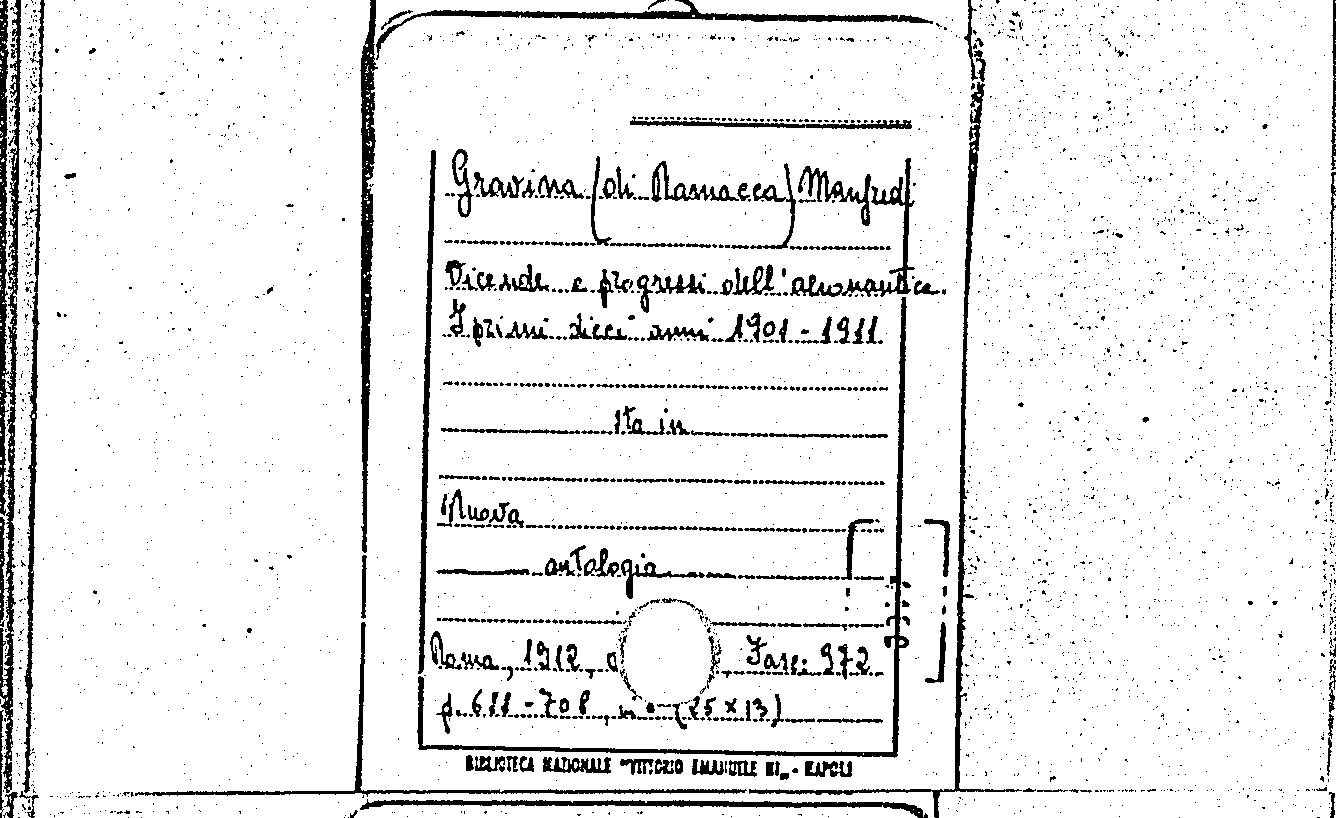 Gravina (di Ramacca) Manfredi
Vicende e progressi dell'aeronautica.
I primi dieci anni 1901-1911
sta in
Nuova
antologia
Roma, 1912, Fasc: 972
p. 611-708, (25x13)
BIBLIOTECA NAZIONALE "VITTORIO EMANUELE III" - NAPOLI